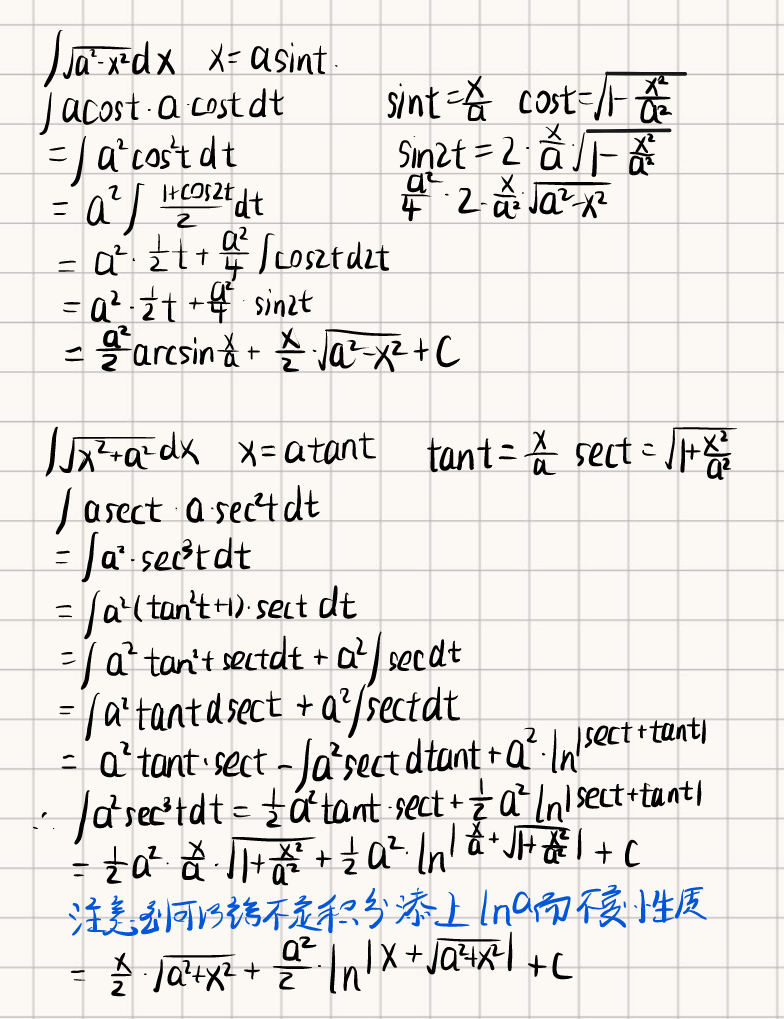 ∫√(a²-x²) dx  x = a sint.
∫ a cost · a · cost dt    sint = x/a  cost = √(1 - x²/a²)
= ∫ a² cos²t dt    sin2t = 2 · x/a √(1 - x²/a²)
= a² ∫ (1+cos2t)/2 dt    a²/4 · 2 · x/a² √(a²-x²)
= a² · 1/2 t + a²/4 ∫ cos2t d2t
= a² · 1/2 t + a²/4 · sin2t
= a²/2 arcsin x/a + x/2 · √(a²-x²) + C
∫√(x²+a²) dx  x = a tant    tant = x/a  sect = √(1 + x²/a²)
∫ a sect · a · sec²t dt
= ∫ a² · sec³t dt
= ∫ a² (tan²t+1) · sect dt
= ∫ a² tan²t sect dt + a² ∫ sec dt
= ∫ a² tant d sect + a² ∫ sect dt
= a² tant · sect - ∫ a² sect d tant + a² · ln|sect + tant|
∴ ∫ a² sec³t dt = 1/2 a² tant · sect + 1/2 a² ln|sect + tant|
= 1/2 a² · x/a · √(1 + x²/a²) + 1/2 a² · ln|x/a + √(1 + x²/a²)| + C
注意到可以给不定积分添上 lna 而不变性质
= x/2 · √(a²+x²) + a²/2 · ln|x + √(a²+x²)| + C